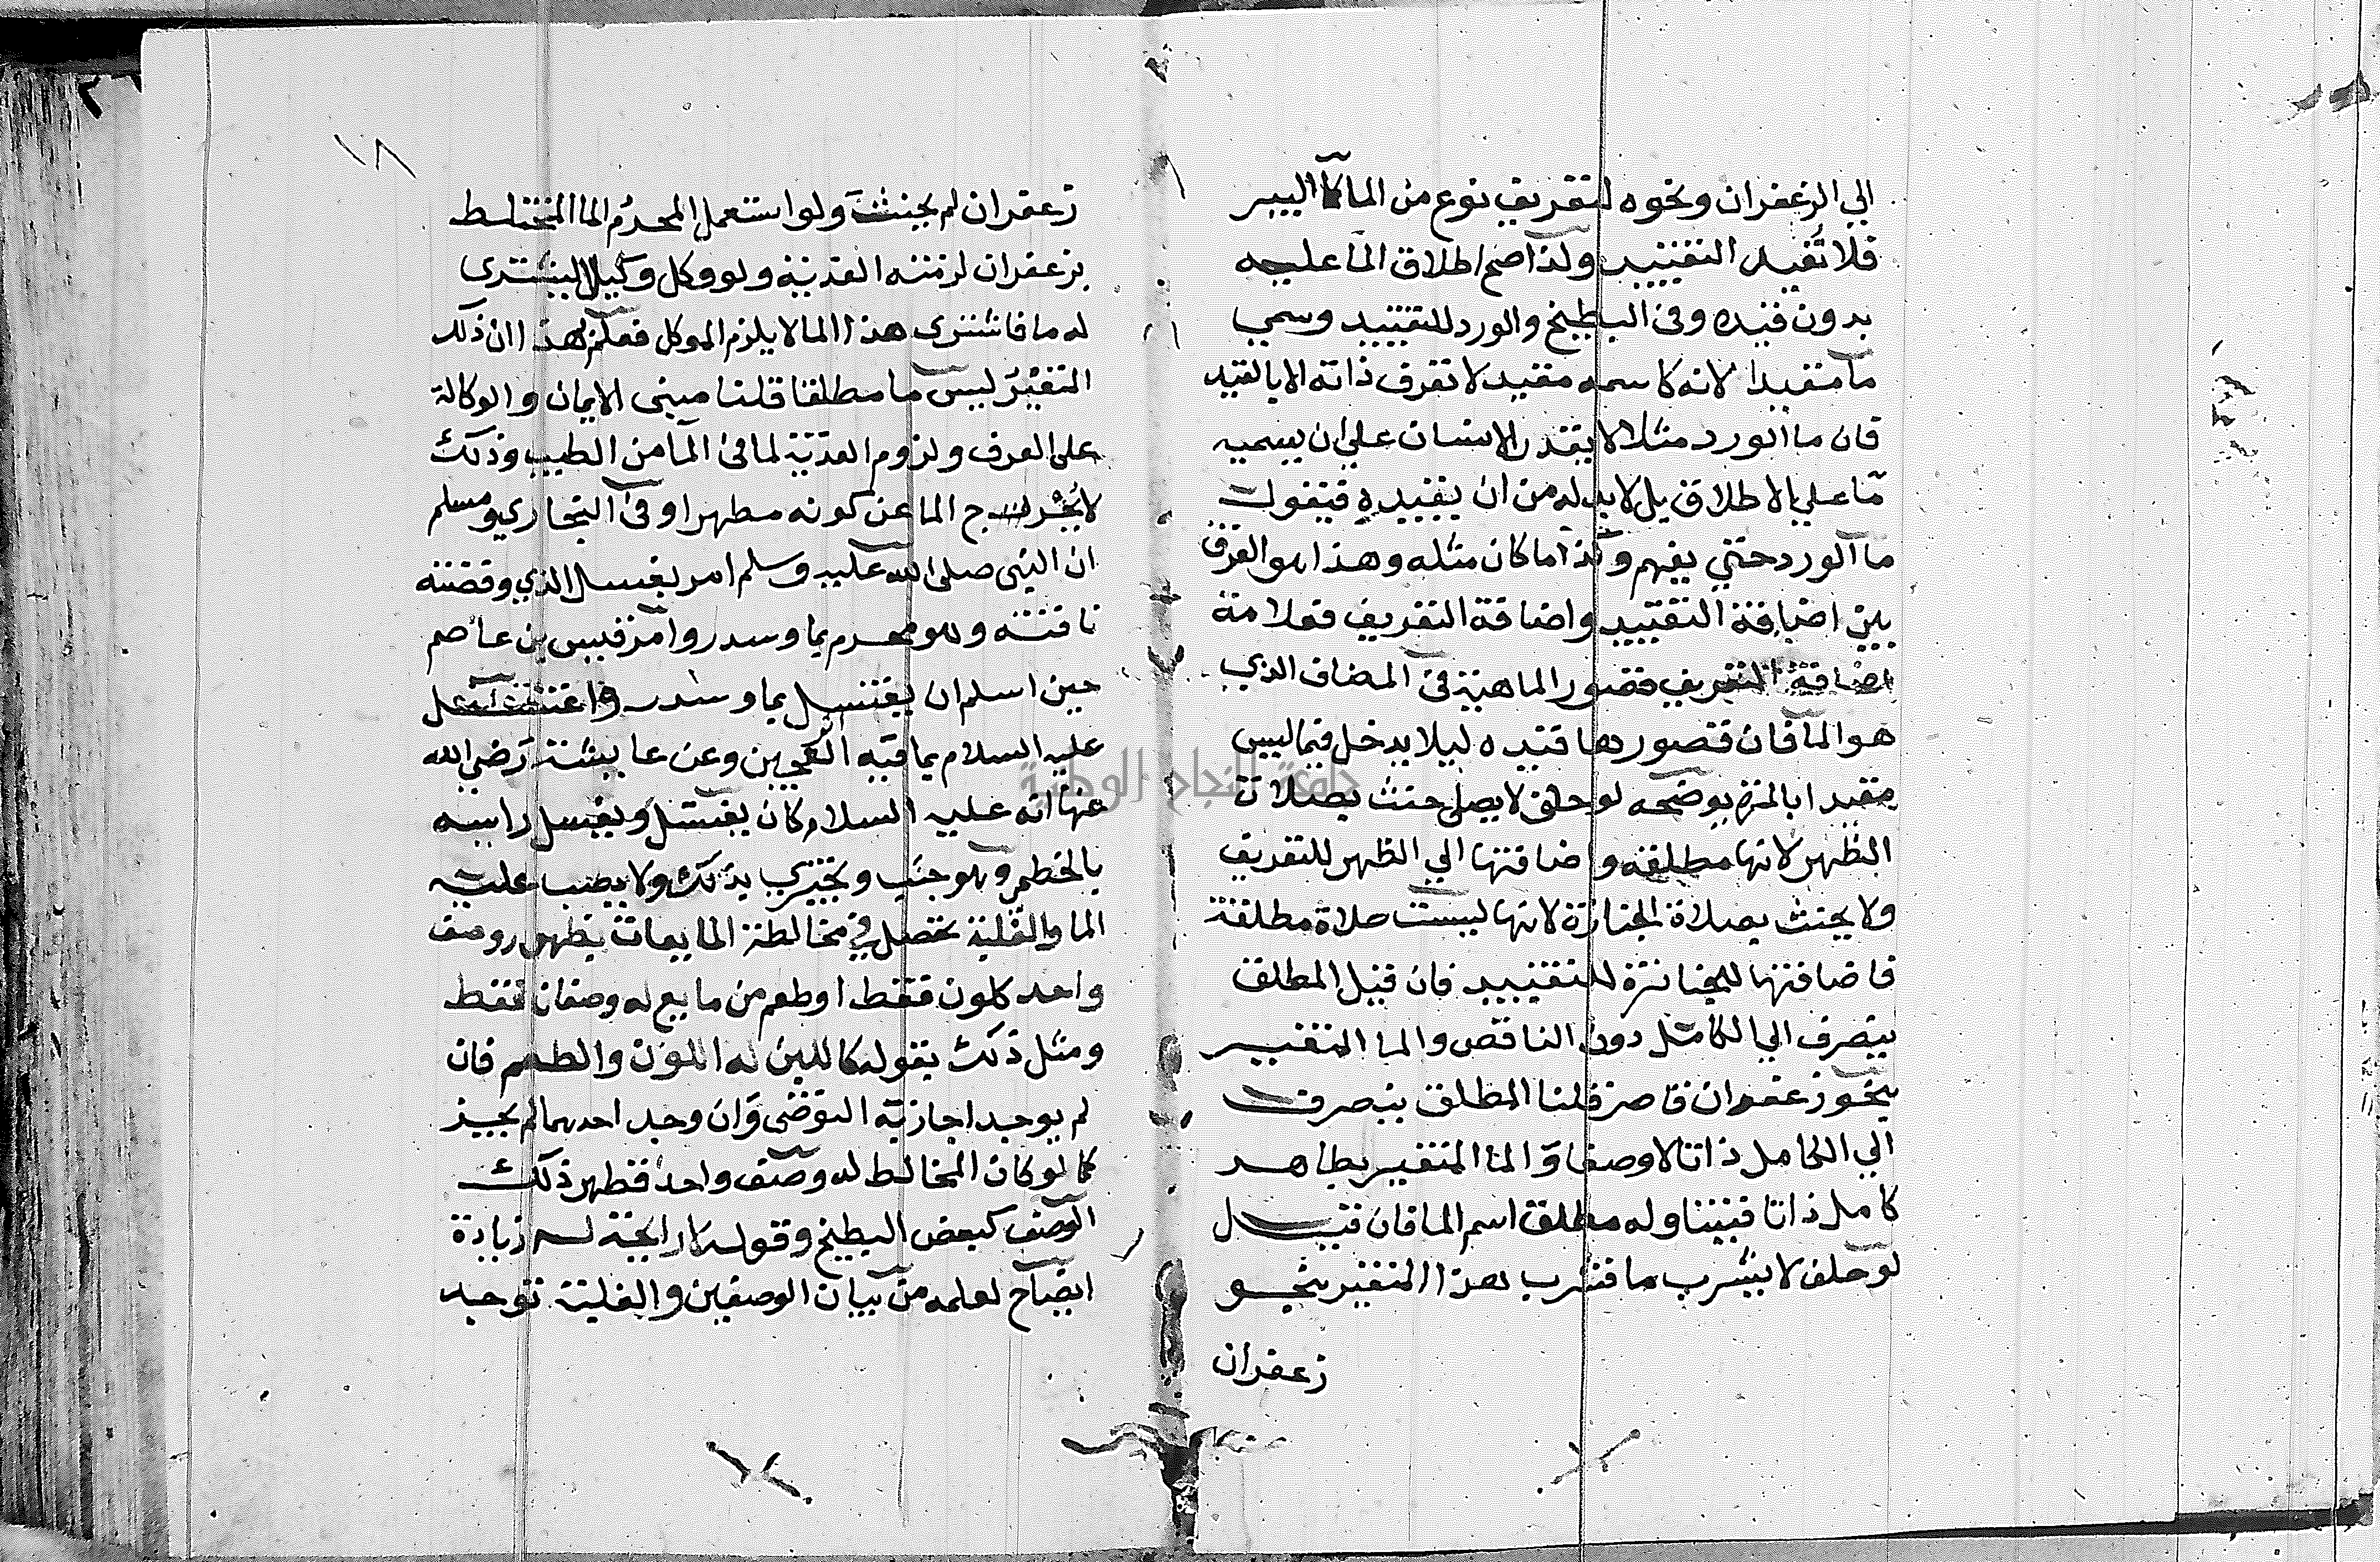 الي الزعفران ونحوه لتعريف نوع من الما كماء البير
فلا تفيد التقييد ولذا صح اطلاق الما عليه
بدون قيده وفي البطيخ والورد للتقييد وسمي
ما مقيدا لانه كاسمه مقيد لا تعرف ذاته الا بالقيد
فان ما الورد مثلا لا يقدر الانسان علي ان يسميه
ما علي الاطلاق بل لابد له من ان يقيده فيقول
ما الورد حتي يفهم وكذا ما كان مثله وهذا هو الفرق
بين اضافة التقييد واضافة التعريف فعلامة
اضافة التعريف قصور الماهية في المضاف الذي
هو الما فان قصورها قيده ليلا يدخل فيما ليس
مقيدا بالمزيوضحه لو حلف لا يصلي حنث بصلاة
الظهر لانها مطلقة واضافتها الي الظهر للتعريف
ولا يحنث بصلاة الجنازة لانها ليست صلاة مطلقة
فاضافتها للجنازة للتقييد فان قيل المطلق
ينصرف الي الكامل دون الناقص والما المتغير
بنحو زعفران قاصر قلنا المطلق ينصرف
الي الكامل ذاتا لا وصفا والما المتغير بطاهر
كامل ذاتا فيتناوله مطلق اسم الما فان قيل
لو حلف لا يشرب ما فشرب هذا المتغير بنحو
زعفران
١٨
زعفران لم يحنث ولو استعمل المحرم الما المختلط
بزعفران لزمته الفدية ولو وكل وكيلا ليشتري
له ما فاشتري هذا الما لا يلزم الموكل فعلم بهذا ان ذلك
التغير ليس ما مطلقا قلنا مبنى الايمان والوكالة
على العرف ولزوم الفدية لما في الما من الطيب وذلك
لا يخرج الما عن كونه مطهرا وفي البخاري ومسلم
ان النبي صلى الله عليه وسلم امر بغسل الذي وقصته
ناقته وهو محرم بما وسدر وامر قيس بن عاصم
حين اسلم ان يغتسل بما وسدر واغتسل
عليه السلام بما فيه العجين وعن عايشة رضي الله
عنها انه عليه السلام كان يغتسل ويغسل راسه
بالخطمي وهو جنب ويجتزي بذلك ولا يصب عليه
الما والغلبة تحصل في مخالطة المايعات بظهور وصف
واحد كلون فقط او طعم من مايع له وصفان فقط
ومثل ذلك بقوله كاللبن له اللون والطعم فان
لم يوجد اجاز به التوضي وان وجد احدهما لم يجز
كما لو كان المخالط له وصف واحد فظهر ذلك
الوصف كبعض البطيخ وقوله لا رايحة له زيادة
ايضاح لعلمه من بيان الوصفين والغلبة توجد
جامعة النجاح الوطنية